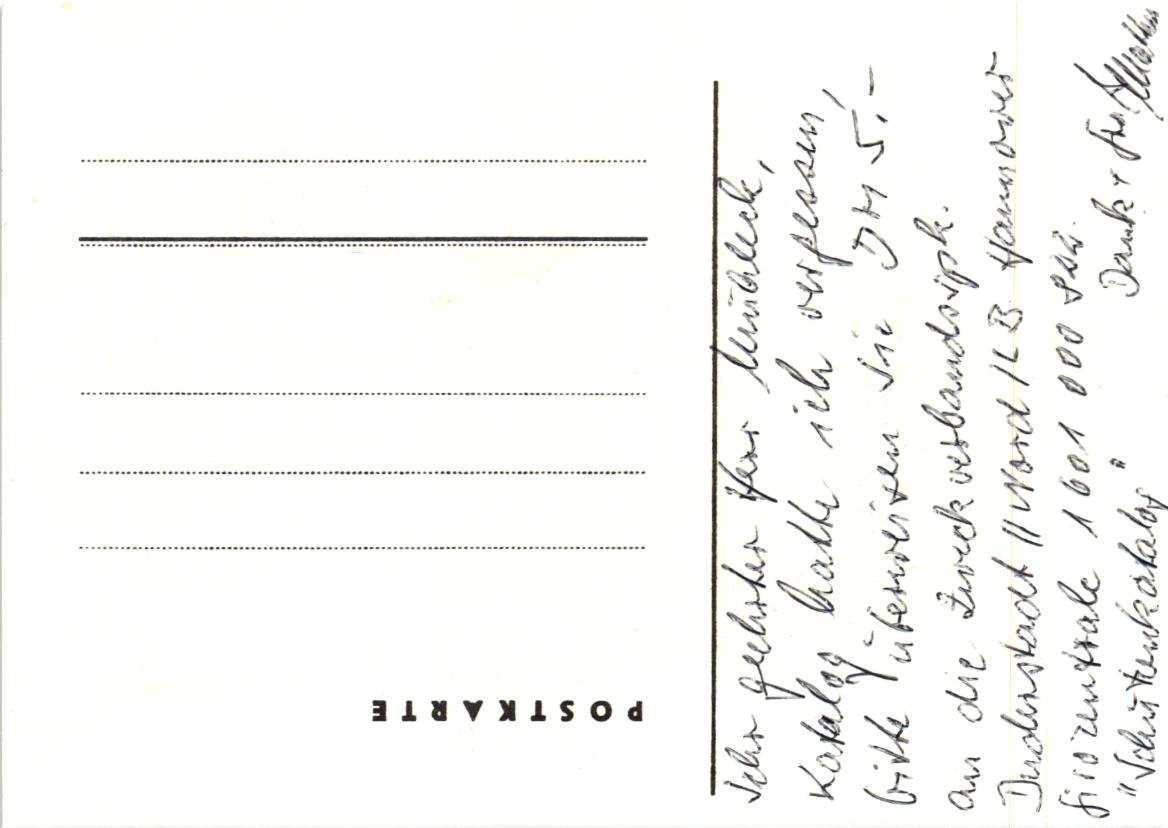 POSTKARTE
Sehr geehrter Herr
Katalog hatte ich vergessen,
bitte überweisen Sie DM 5,-
an die Zweckverbandsspk.
Duderstadt // Nord/LB Hannover
Girozentrale 1 601 000
"Schützenkatalog" Dank +